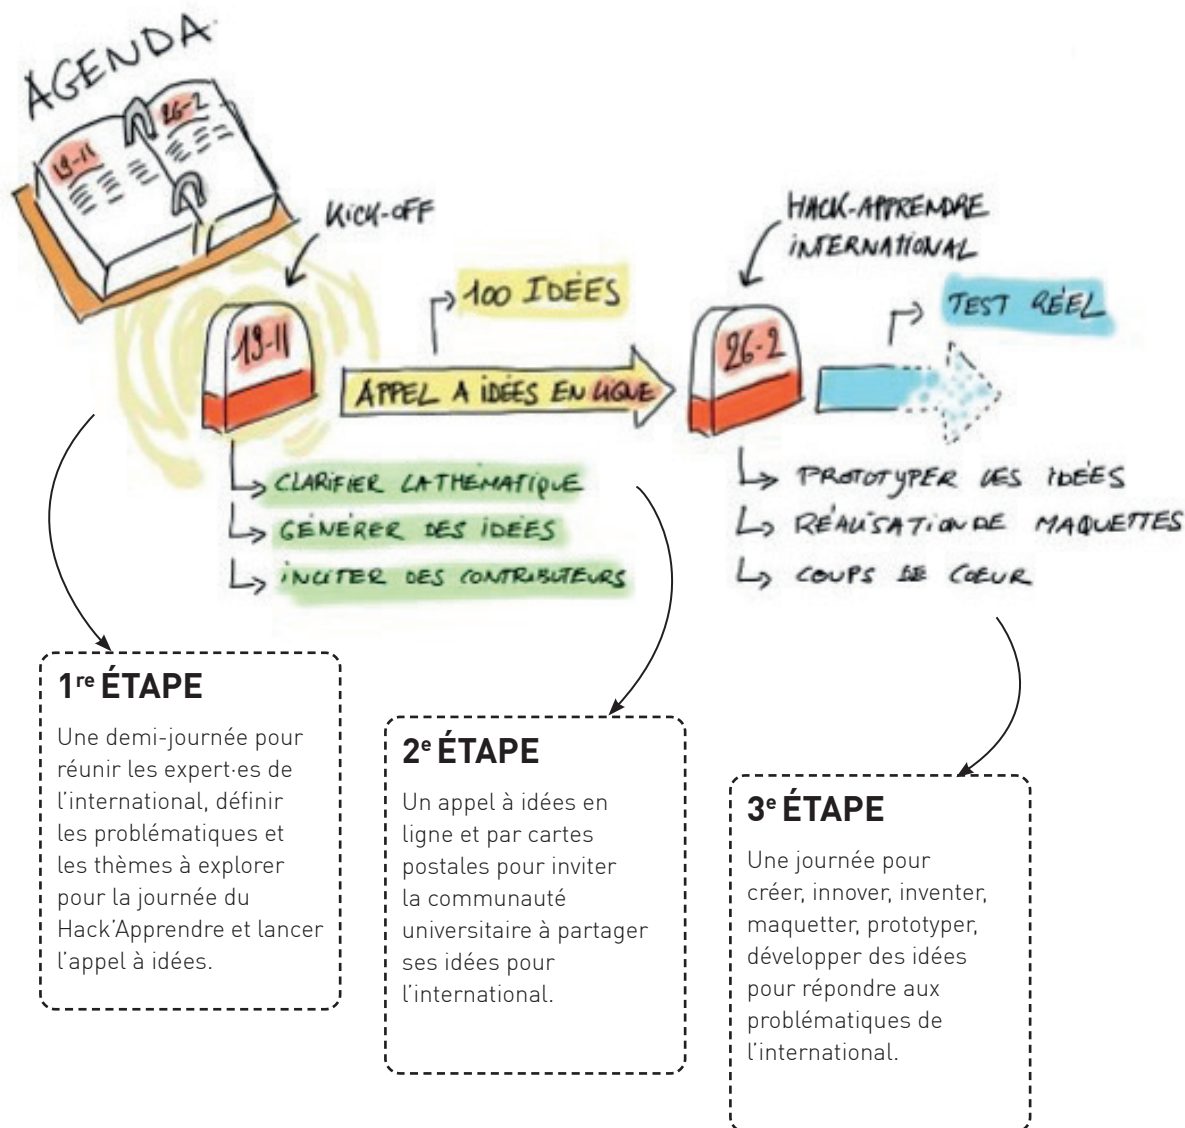 AGENDA
19-11
26-2
KICK-OFF
HACK-APPRENDRE
INTERNATIONAL
100 IDÉES
TEST RÉEL
19-11
26-2
APPEL A IDÉES EN LIGNE
CLARIFIER LA THÉMATIQUE
GÉNÉRER DES IDÉES
INCITER DES CONTRIBUTEURS
PROTOTYPER LES IDÉES
RÉALISATION DE MAQUETTES
COUPS DE COEUR
1re ÉTAPE
Une demi-journée pour
réunir les expert·es de
l’international, définir
les problématiques et
les thèmes à explorer
pour la journée du
Hack’Apprendre et lancer
l’appel à idées.
2e ÉTAPE
Un appel à idées en
ligne et par cartes
postales pour inviter
la communauté
universitaire à partager
ses idées pour
l’international.
3e ÉTAPE
Une journée pour
créer, innover, inventer,
maquetter, prototyper,
développer des idées
pour répondre aux
problématiques de
l’international.